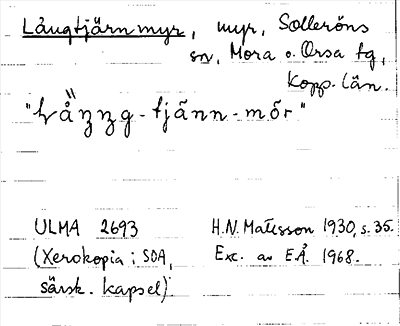 Långtjärnmyr, myr, Solleröns
sn, Mora o. Orsa tg,
Kopp. län.
"Lånng-tjänn-mõr"
ULMA 2693
(Xerokopia i SOA,
särsk. kapsel)
H.N. Matsson 1930, s. 35.
Exc. av EÅ. 1968.